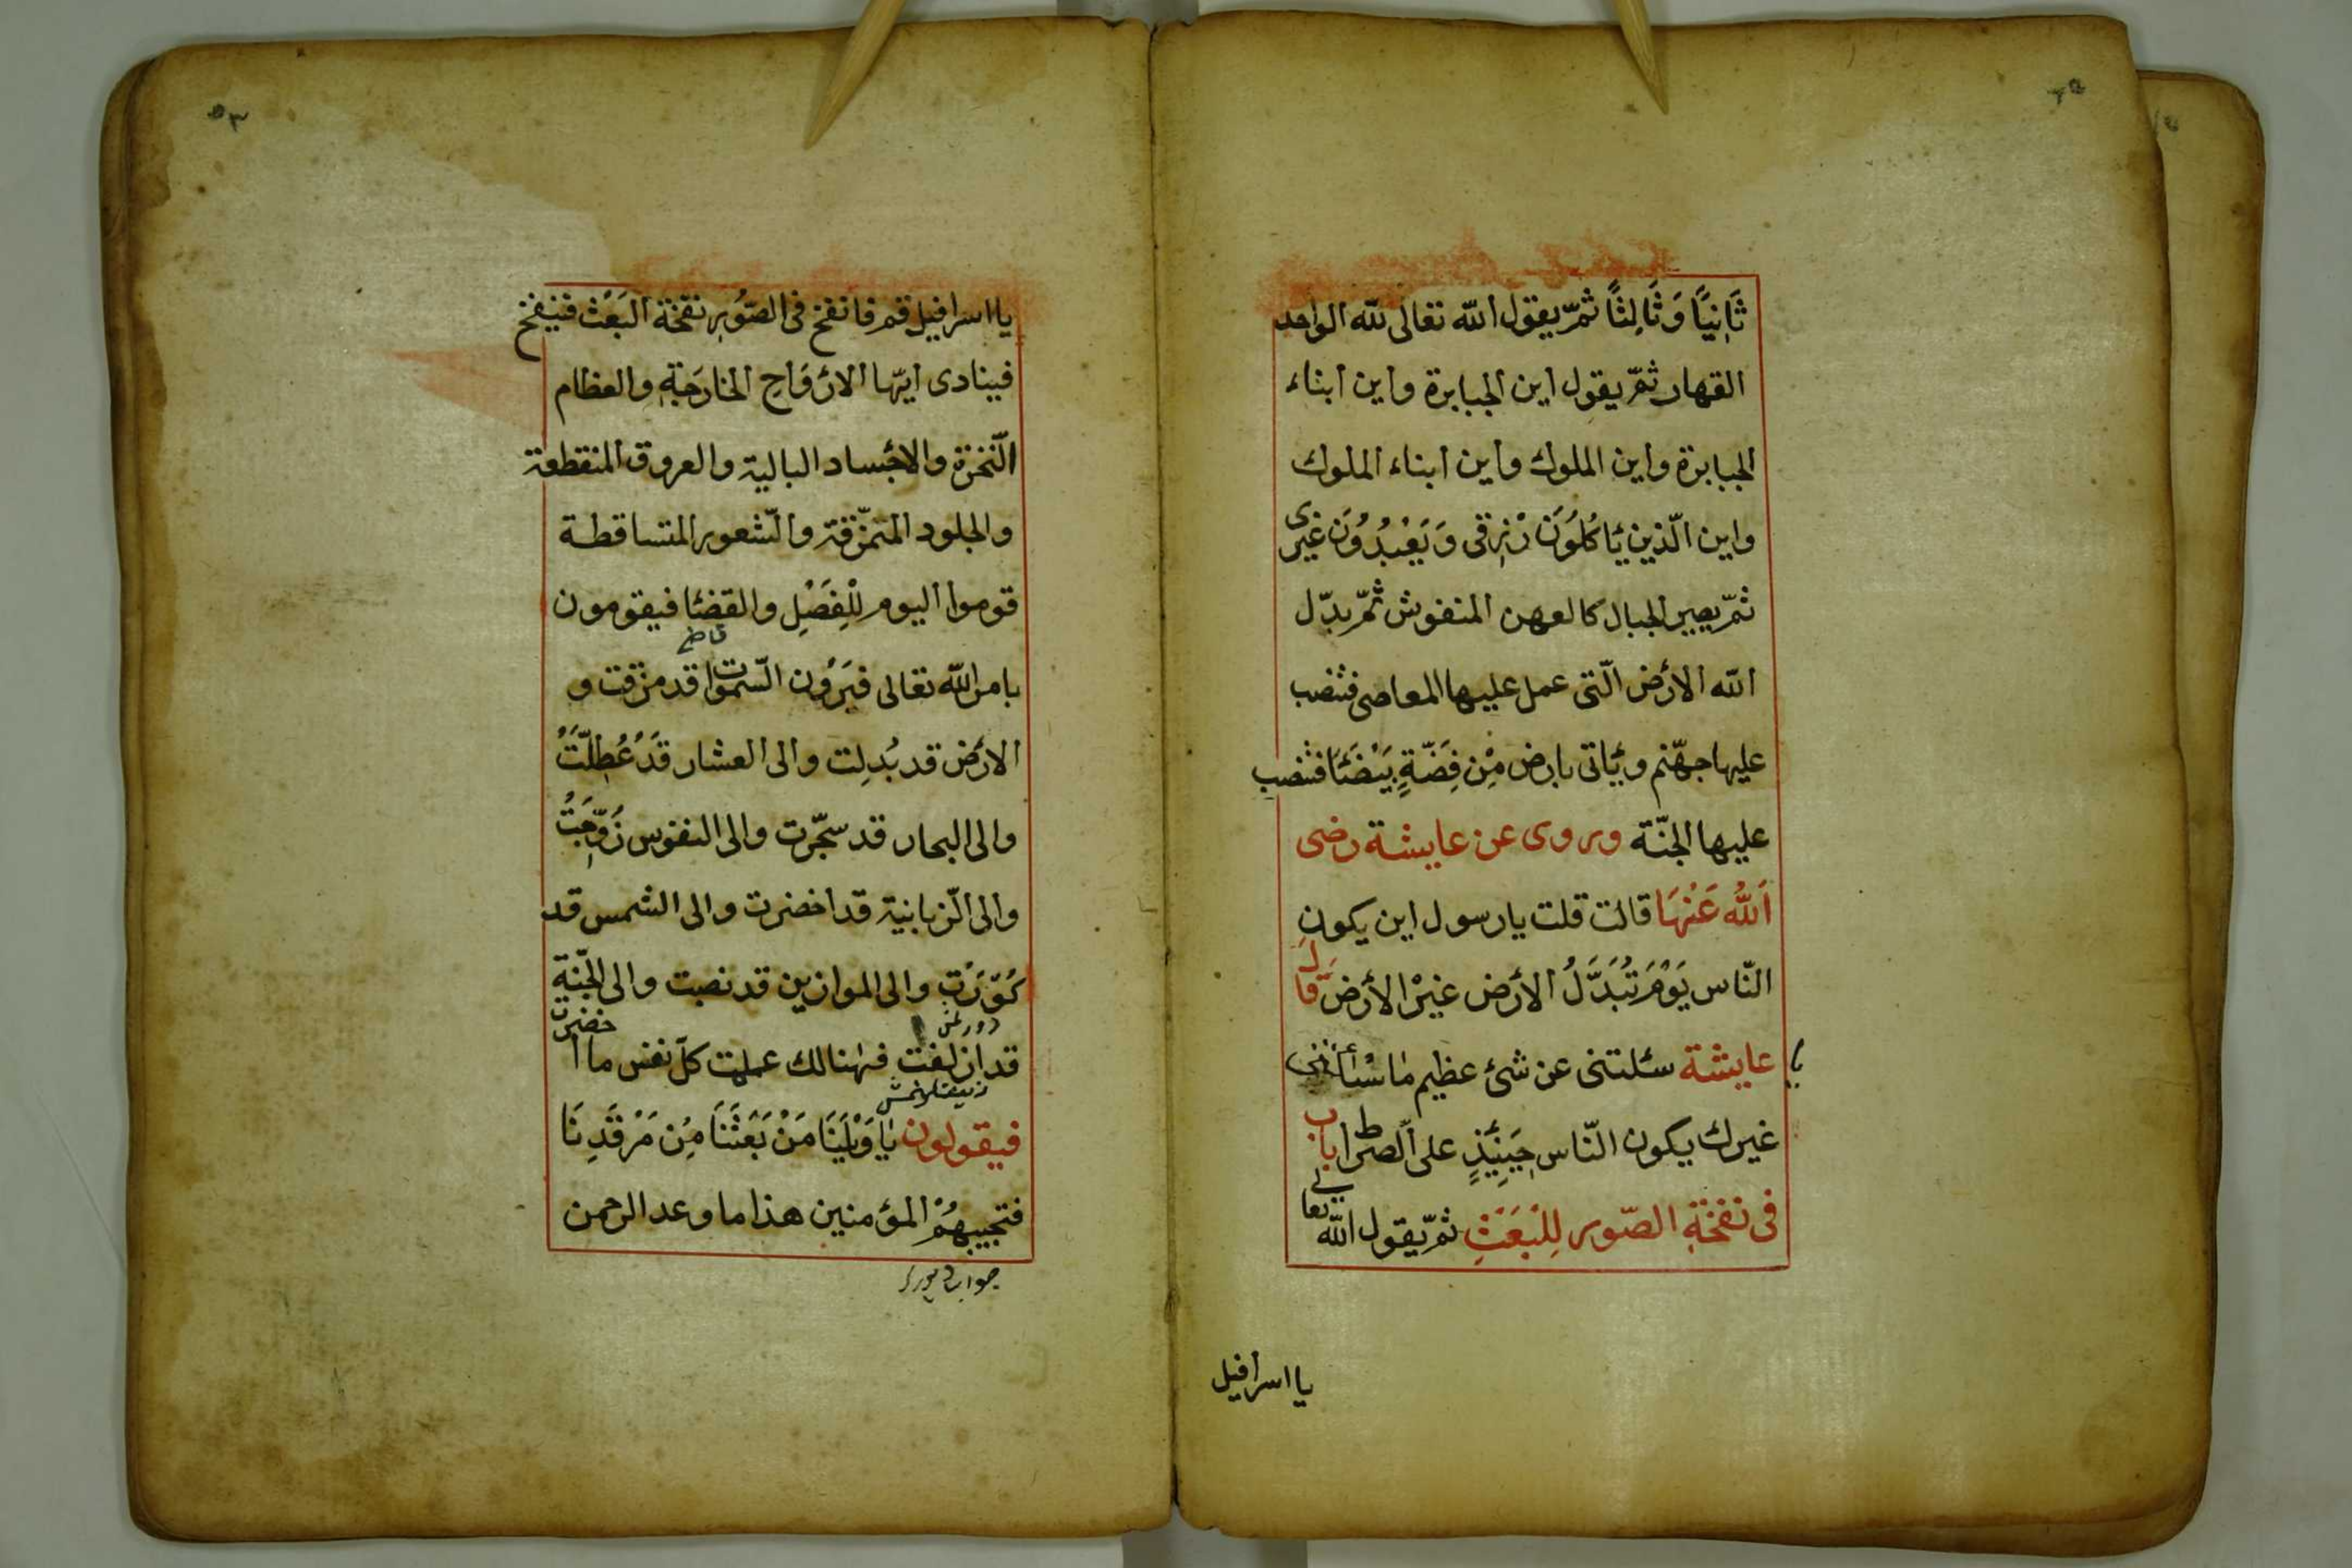 ثَانِيًا وَثَالِثًا ثمّ يقول الله تعالى لله الواحد
القهار ثمّ يقول اين الجبابرة واين ابناء
الجبابرة واين الملوك واين ابناء الملوك
واين الّذين يَاكُلُونَ رْزقى وَيَعْبُدُونَ غيرى
ثمّ يصير الجبال كالعهن المنفوش ثُمّ يدّل
الله الارْض الّتى عمل عليها المعاصى فتنصب
عليها جهّنم ويؤاتى بارض مْن فِضّةٍ بَيْضَئَا فتنصب
عليها الجنّة وروى عن عايشة رضى
اَللهُ عَنْهَا قالت قلت يا رسول اين يكون
النّاس يَوْمَ تُبَدَّلُ الأرض غيْر الأرض قَالَ
يا عايشة سئلتنى عن شئ عظيم مٰا سْئألنى
غيرك يكون النّاس حِيَنِئذٍ على الّصراط باب
فى نفخةِ الصّور لِلْبَعَثِ ثمّ يقول الله تعالى
يا اسرافيل
٥٣
يا اسرافيل قم فانفخ فى الصّوُرِ نفخة اَلبَعْث فينفخ
فينادى ايّها الارْوَاح الخارَجَةِ والعظام
الّنخرة والاجْساد البالية والعروق المنقطعة
والجلود المتمزّقة والّشعور المتساقطة
قوموا اليوم لِلْفَصْلِ والقضئا فيقومون
بامر الله تعالى فيَرَوْن السّموات قد مزقت و
الارْض قد بُدِلت والى العشار قَدْ عُطِلّتْ
والى البحار قد سجّرت والى النفوس زُوّجَتْ
والى الّزبانية قد اخضرت والى الشمس قد
كُوّرَتْ والى الموازين قد نصبت والى الجّنة
قد ازلفت فهٰنالك عملت كلّ نفس ما احضرت
فيقولون يٰا وَيْلَيَنَا مَنْ بَعَثَنَا مِن مَرْقَدِنَا
فتجيبهُمْ المؤمنين هذا ما وعد الرحمن